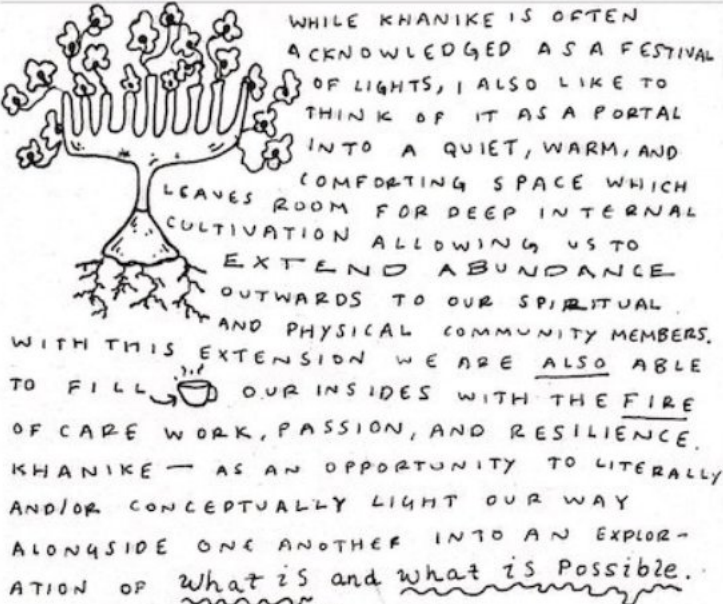 WHILE KHANIKE IS OFTEN
ACKNOWLEDGED AS A FESTIVAL
OF LIGHTS, I ALSO LIKE TO
THINK OF IT AS A PORTAL
INTO A QUIET, WARM, AND
COMFORTING SPACE WHICH
LEAVES ROOM FOR DEEP INTERNAL
CULTIVATION ALLOWING US TO
EXTEND ABUNDANCE
OUTWARDS TO OUR SPIRITUAL
AND PHYSICAL COMMUNITY MEMBERS.
WITH THIS EXTENSION WE ARE ALSO ABLE
TO FILL OUR INSIDES WITH THE FIRE
OF CARE WORK, PASSION, AND RESILIENCE.
KHANIKE — AS AN OPPORTUNITY TO LITERALLY
AND/OR CONCEPTUALLY LIGHT OUR WAY
ALONGSIDE ONE ANOTHER INTO AN EXPLOR-
ATION OF what is and what is Possible.